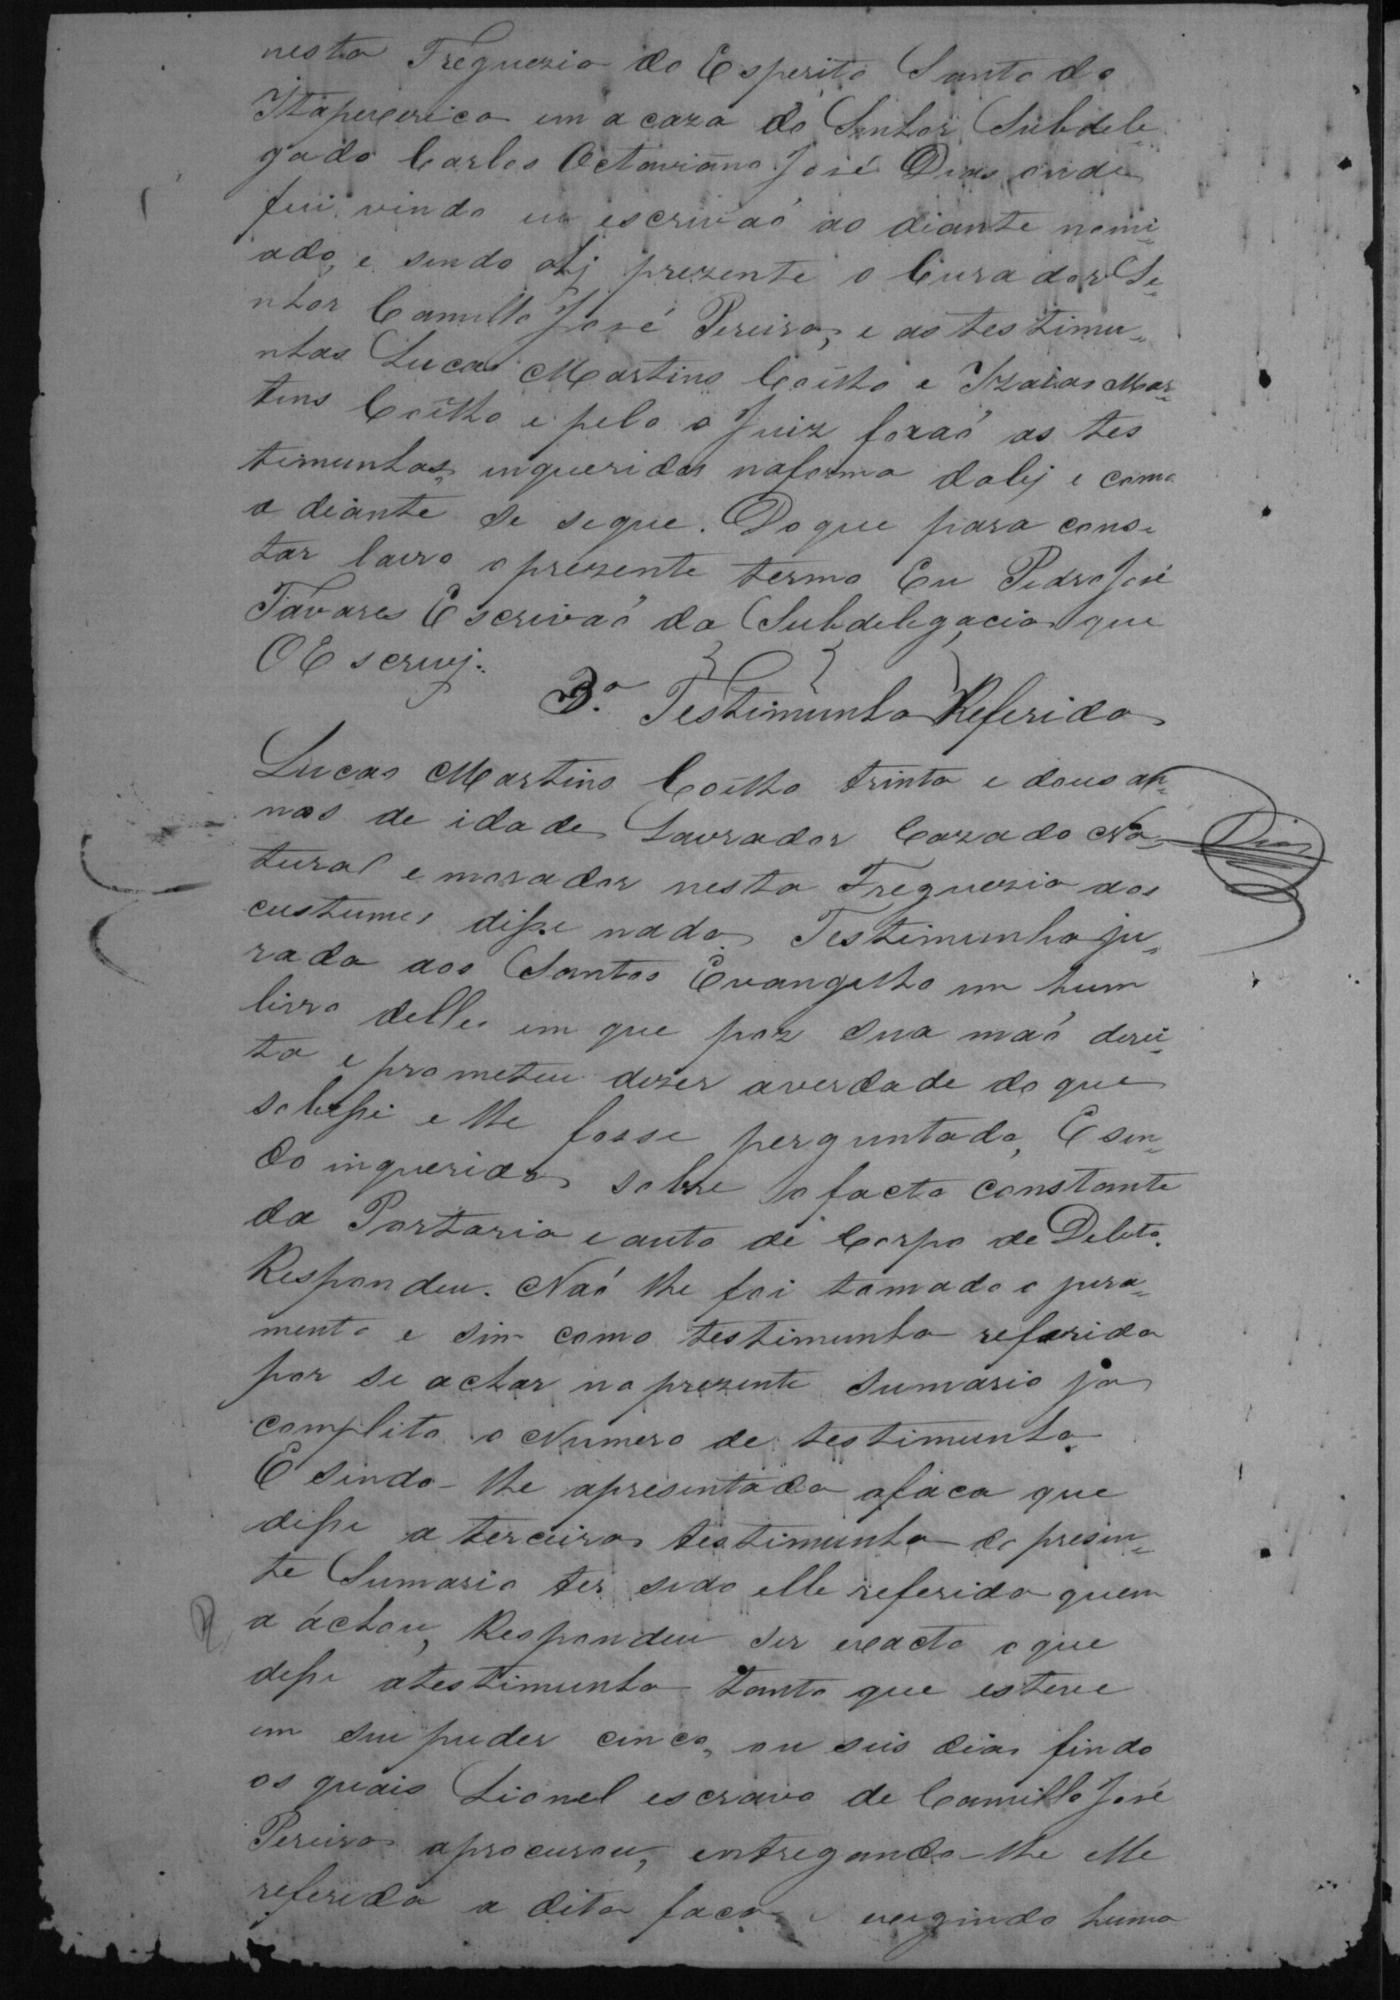 nesta Freguezia do Esperito Santo do
Itapecerica em a caza do Senhor Subdele
gado Carlos Octaviano José Dias onde
fui vindo eu escrivaõ ao diante nomi-
ado, e sendo ahj prezente o Curador Se-
nhor Camillo José Pereira, e as testimu-
nhas Lucas Martins Coêlho e Izaias Mar-
tins Coêlho e pelo o Juiz foraõ as tes
timunhas, inqueridas naforma dalej e como
a diante se segue. Doque para cons-
tar lavro oprezente termo Eu Pedro José
Tavares Escrivaõ da Subdelegacia que
OEscrevj.
3.ª Testimunha Referida
Lucas Martins Coêlho trinta e dous an-
nos de idade Lavrador Cazado Na-
tural e morador nesta Freguezia aos
custumes disse nada Testimunha ju-
rada aos Santos Evangelho em hum
livro delles em que poz sua maõ direi-
ta e prometeu dizer averdade do que
sobesse e lhe fosse perguntado, E sen-
do inquerido sobre o facto constante
da Portaria e auto de Corpo de Delito.
Respondeu. Naõ lhe foi tomado o jura-
mento e sim como testimunha referida
por se achar no prezente sumario ja
complito o Numero de testimunha
E sendo-lhe apresentada afaca que
disse a terceira testimunha do presen-
te Sumario ter sido elle referido quem
a áchou, Respondeu ser exacto o que
disse atestimunha tanto que esteve
em seu puder cinco, ou seis dias findo
os quais Lionel escravo de Camillo José
Pereira aprocurou, entregando-lhe elle
referido a dita faca e exegindo huma
Dias